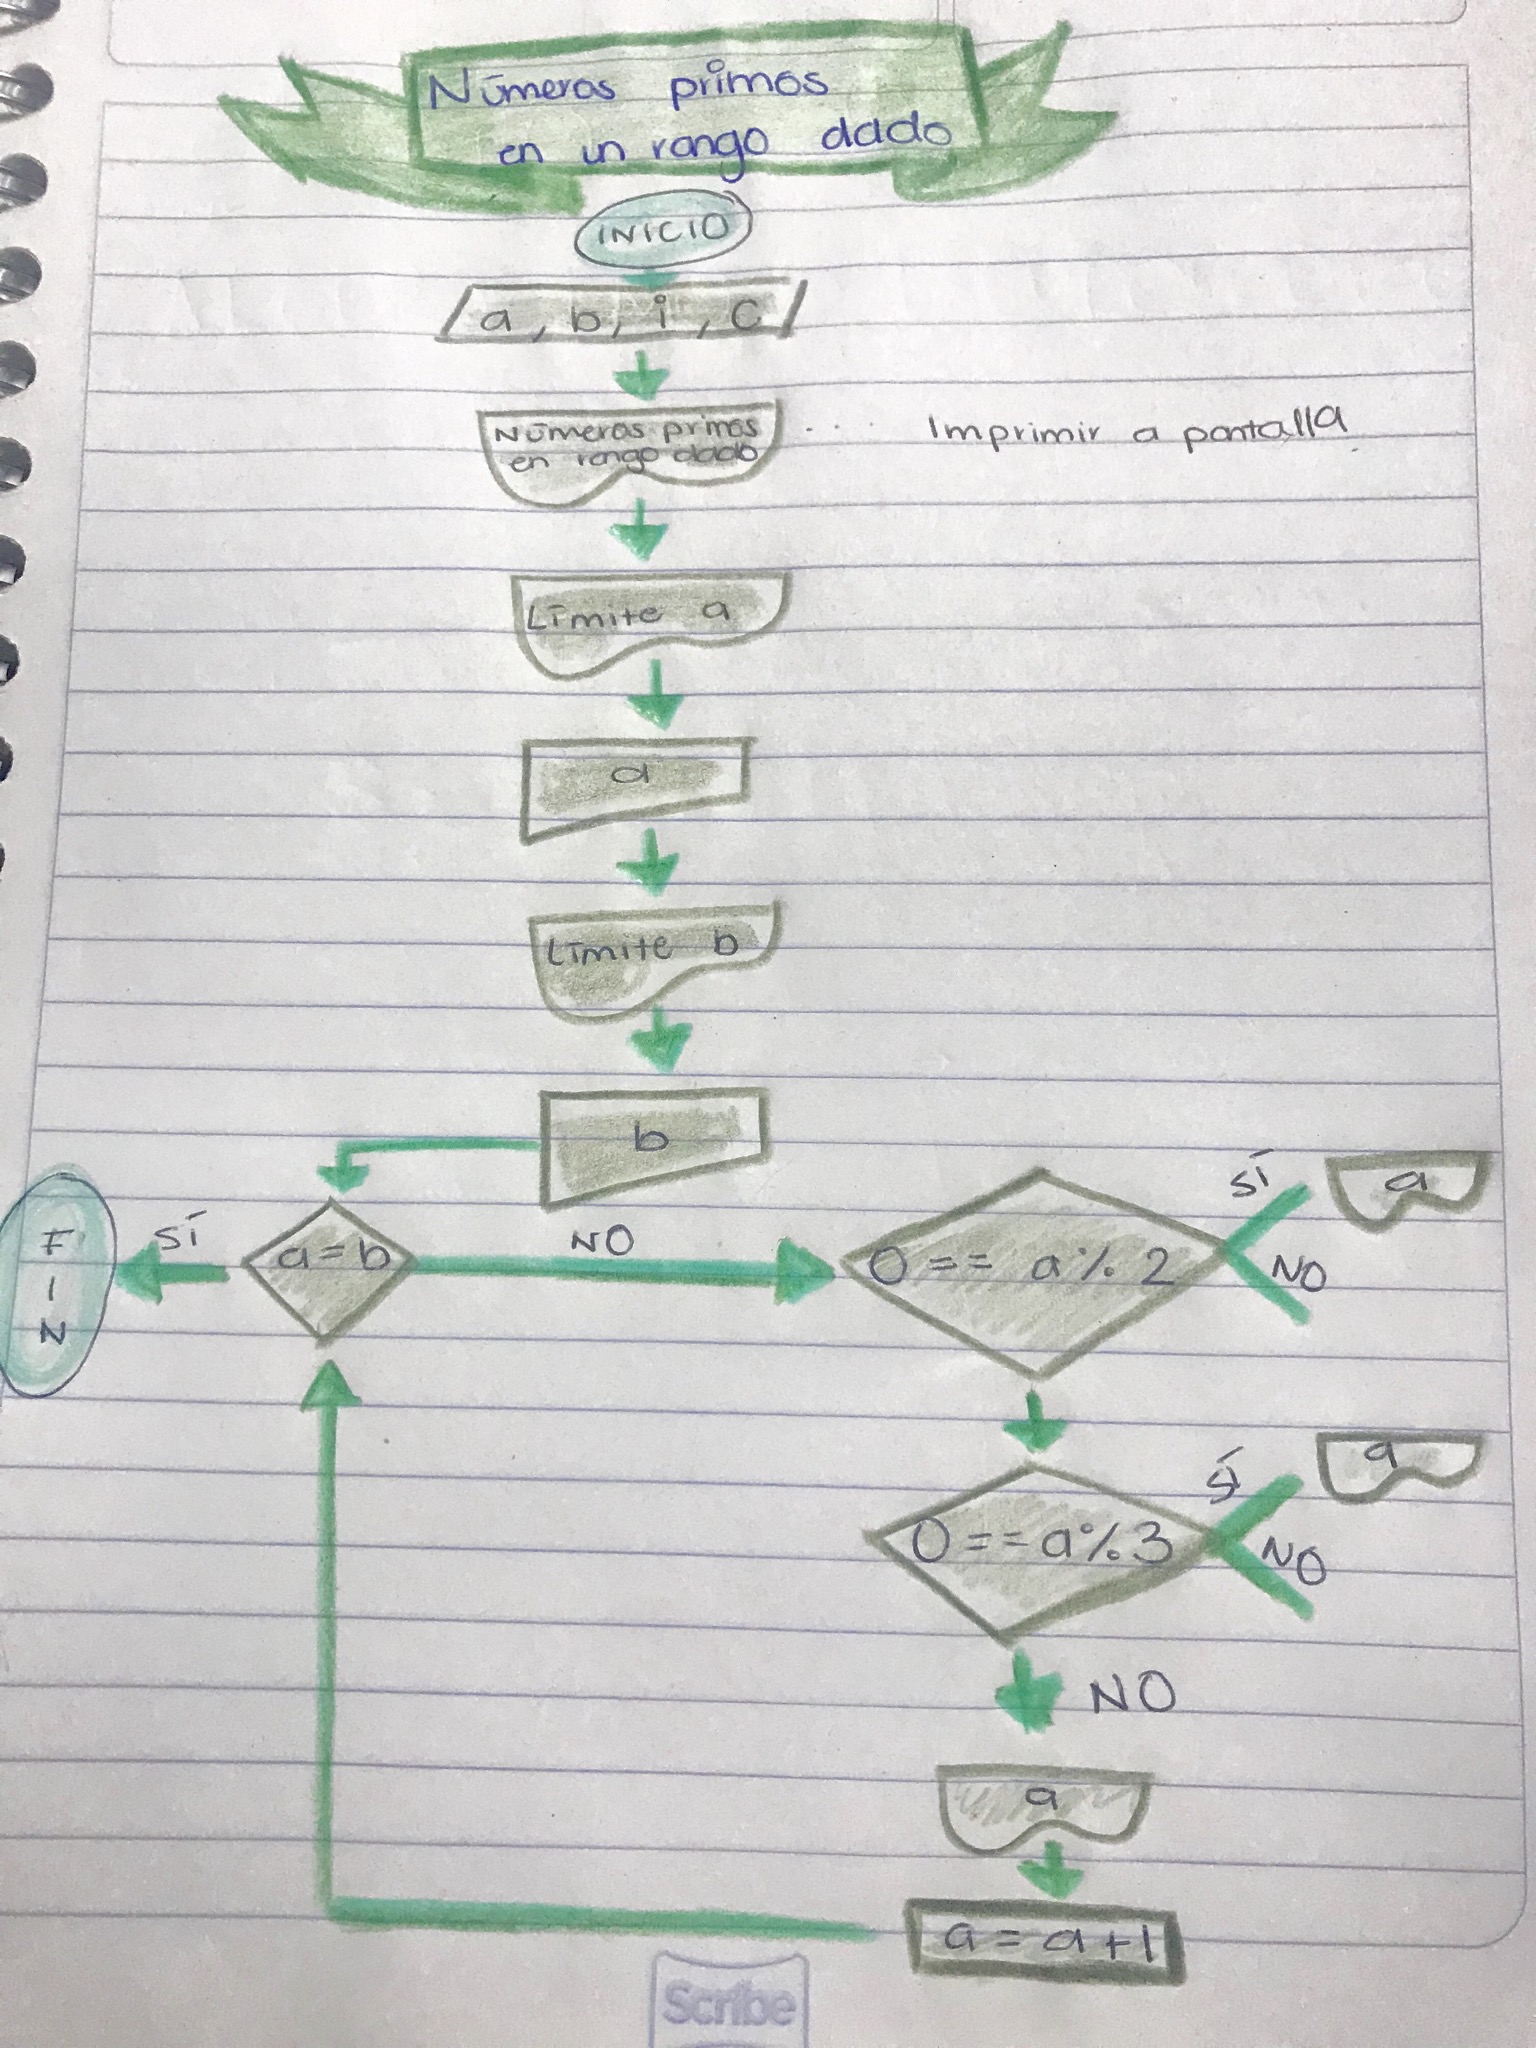 Números primos
en un rango dado
INICIO
a, b, i, c
Números primos
en rango dado
.... Imprimir a pantalla.
Límite a
a
Límite b
b
a = b
SÍ
F
I
N
NO
0 == a % 2
SÍ
a
NO
0 == a % 3
SÍ
a
NO
NO
a
a = a + 1
Scribe